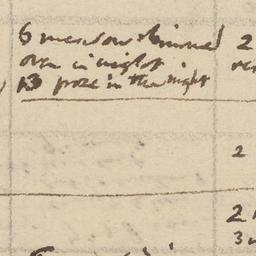 6 meadow skimmed 2
over in night
13 froze in the night
2
2
3